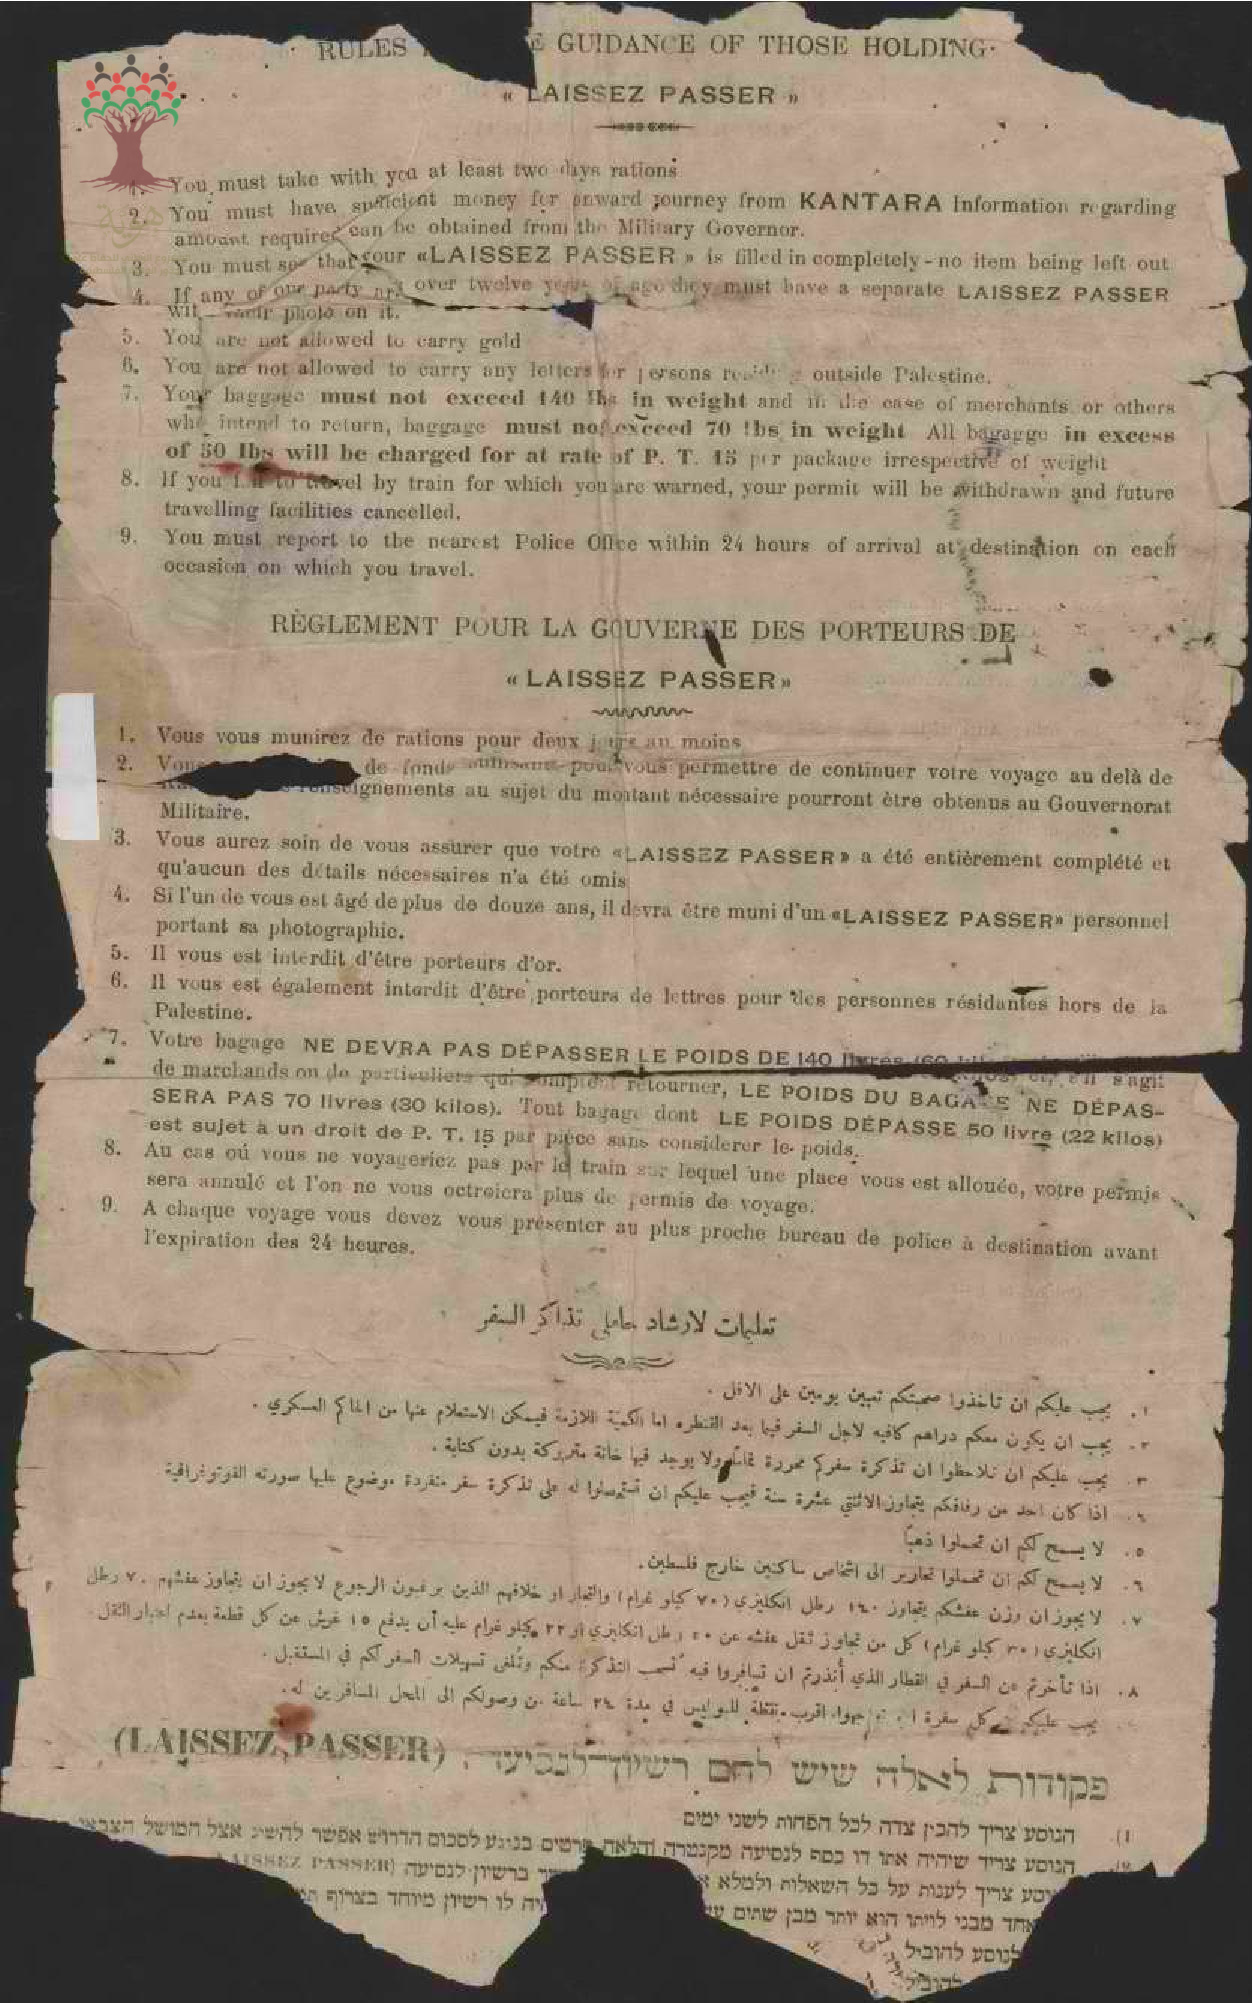 RULES GUIDANCE OF THOSE HOLDING
« LAISSEZ PASSER »
1. You must take with you at least two days rations
2. You must have sufficient money for onward journey from KANTARA Information regarding
amount required can be obtained from the Military Governor.
3. You must see that your «LAISSEZ PASSER » is filled in completely - no item being left out
4. If any of our party are over twelve years of age they must have a separate LAISSEZ PASSER
their photo on it.
5. You are not allowed to carry gold
6. You are not allowed to carry any letters for persons outside Palestine.
7. Your baggage must not exceed 140 lbs in weight and in the case of merchants or others
who intend to return, baggage must not exceed 70 lbs in weight All bagagge in excess
of 50 lbs will be charged for at rate of P. T. 15 per package irrespective of weight
8. If you to travel by train for which you are warned, your permit will be withdrawn and future
travelling facilities cancelled.
9. You must report to the nearest Police Office within 24 hours of arrival at destination on each
occasion on which you travel.
RÈGLEMENT POUR LA GOUVERNE DES PORTEURS DE
« LAISSEZ PASSER»
1. Vous vous munirez de rations pour deux jours au moins
2. Vous de fonds pour vous permettre de continuer votre voyage au delà de
renseignements au sujet du montant nécessaire pourront être obtenus au Gouvernorat
Militaire.
3. Vous aurez soin de vous assurer que votre «LAISSEZ PASSER» a été entièrement complété et
qu'aucun des détails nécessaires n'a été omis
4. Si l'un de vous est âgé de plus de douze ans, il devra être muni d'un «LAISSEZ PASSER» personnel
portant sa photographie.
5. Il vous est interdit d'être porteurs d'or.
6. Il vous est également interdit d'être porteurs de lettres pour des personnes résidantes hors de la
Palestine.
7. Votre bagage NE DEVRA PAS DÉPASSER LE POIDS DE 140 livres
de marchands ou de particuliers qui comptent retourner, LE POIDS DU BAGAGE NE DÉPAS-
SERA PAS 70 livres (30 kilos). Tout bagage dont LE POIDS DÉPASSE 50 livre (22 kilos)
est sujet à un droit de P. T. 15 par pièce sans considerer le poids.
8. Au cas oú vous ne voyageriez pas par le train sur lequel une place vous est allouée, votre permis
sera annulé et l'on ne vous octroiera plus de permis de voyage.
9. A chaque voyage vous devez vous présenter au plus proche bureau de police à destination avant
l'expiration des 24 heures.
تعليمات لارشاد حاملي تذاكر السفر
١. يجب عليكم ان تاخذوا صحبتكم تعيين يومين على الاقل .
٢. يجب ان يكون معكم دراهم كافيه لاجل السفر فيما بعد القنطره اما الكمية اللازمة فيمكن الاستعلام عنها من الحاكم العسكري .
٣. يجب عليكم ان تلاحظوا ان تذكرة سفركم محررة تماما ولا يوجد فيها خانة متروكة بدون كتابة .
٤. اذا كان احد من رفاقكم يتجاوز الاثنتي عشرة سنة فيجب عليكم ان تستحصلوا له على تذكرة سفر منفردة موضوع عليها صورته الفوتوغرافية
٥. لا يسمح لكم ان تحملوا ذهباً
٦. لا يسمح لكم ان تحملوا تحارير الى اشخاص ساكنين خارج فلسطين.
٧. لا يجوز ان وزن عفشكم يتجاوز ١٤٠ رطل انكليزي (٧٠ كيلو غرام) والتجار او خلافهم الذين يرغبون الرجوع لا يجوز ان يتجاوز عفشهم ٧٠ رطل
انكليزي (٣٠ كيلو غرام) كل من تجاوز ثقل عفشه عن ٥٠ رطل انكليزي او ٢٢ كيلو غرام عليه أن يدفع ١٥ غرش عن كل قطعة بعدم اعتبار الثقل.
٨. اذا تأخرتم عن السفر في القطار الذي أُنذرتم ان تسافروا فيه تسحب التذكرة منكم وتُلغى تسهيلات السفر لكم في المستقبل .
يجب عليكم كل سفرة اقرب نقطة للبوليس في مدة ٢٤ ساعة من وصولكم الى المحل المسافرين له.
פקודות לאלה שיש להם רשיון־לנסיעה (LAISSEZ PASSER)
1). הנוסע צריך להכין צדה לכל הפחות לשני ימים
הנוסע צריך שיהיה אתו דו כסף לנסיעה מקנטרה והלאה, פרטים בנוגע לסכום הדרוש אפשר להשיג אצל המושל הצבאי
צריך לענות על כל השאלות ולמלא ברשיון לנסיעה (LAISSEZ PASSER)
אחד מבני לויתו הוא יותר מבן שתים לו רשיון מיוחד בצרוף
לנוסע להוביל
להוביל